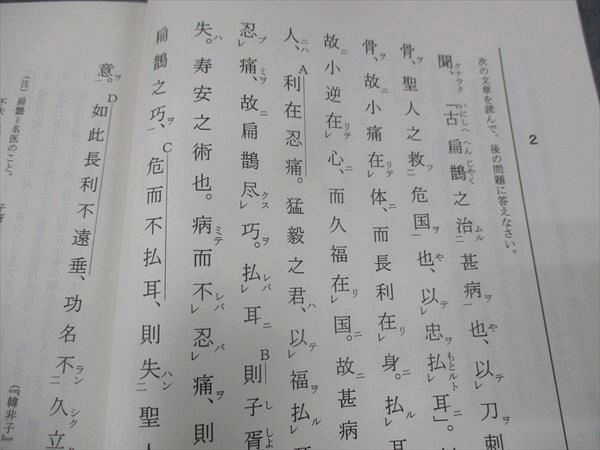 2
次の文章を読んで、後の問題に答えなさい。
聞クナラク、「古いにしへ扁へん鵲じやく之治ムル二甚病ヲ一也や、以テレ刀ヲ刺
骨ヲ、聖人之救フ二危国ヲ一也や、以テレ忠ヲ払もとルトレ耳ニ」。
骨、故ニ小痛在リテレ体ニ、而長利在リレ身ニ。払ルレ耳
故ニ小逆在リテレ心ニ、而久福在リレ国ニ。故ニ甚病
人ニハ、A利在忍痛。猛毅之君ハ、以テレ福ヲ払ルレ
忍ブレ痛ミヲ、故ニ扁鵲尽クスレ巧ヲ。払レバレ耳ニB則子し胥しよ
失ハ。寿安之術也。病ミテ而不レバレ忍バレ痛ヲ、則
扁鵲之巧ヲ一、C危而不払耳、則失ハン二聖人
意ヲ一。D如此長利不遠垂、功名不二久シク立
(注) 扁鵲=名医のこと。
子胥
(『韓非子』